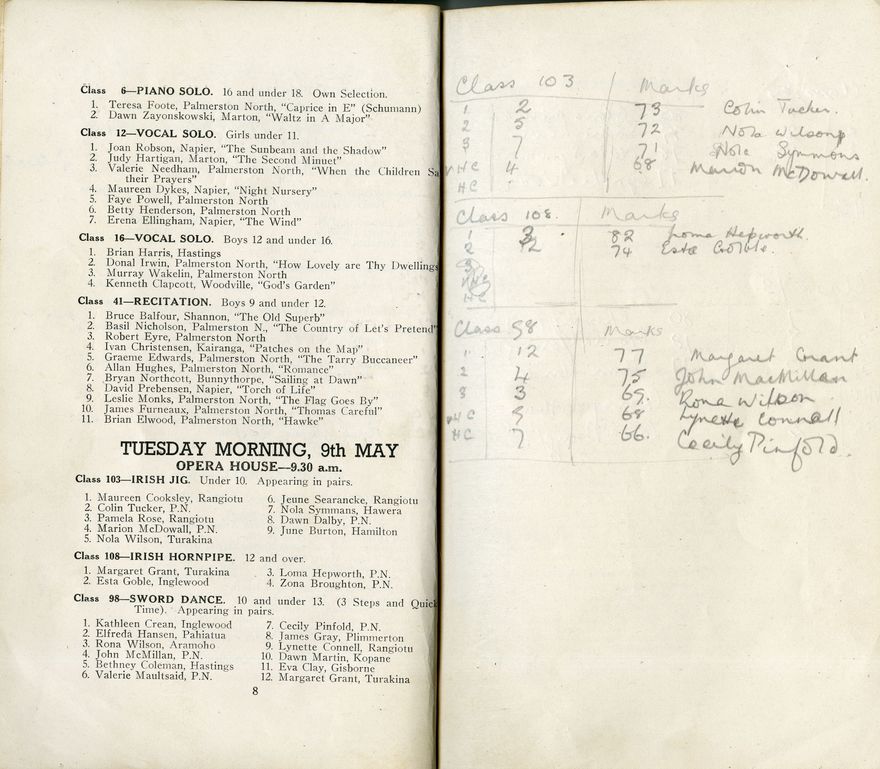 Class 6—PIANO SOLO. 16 and under 18. Own Selection.
1. Teresa Foote, Palmerston North, "Caprice in E" (Schumann)
2. Dawn Zayonskowski, Marton, "Waltz in A Major"
Class 12—VOCAL SOLO. Girls under 11.
1. Joan Robson, Napier, "The Sunbeam and the Shadow"
2. Judy Hartigan, Marton, "The Second Minuet"
3. Valerie Needham, Palmerston North, "When the Children Sa
their Prayers"
4. Maureen Dykes, Napier, "Night Nursery"
5. Faye Powell, Palmerston North
6. Betty Henderson, Palmerston North
7. Erena Ellingham, Napier, "The Wind"
Class 16—VOCAL SOLO. Boys 12 and under 16.
1. Brian Harris, Hastings
2. Donal Irwin, Palmerston North, "How Lovely are Thy Dwellings
3. Murray Wakelin, Palmerston North
4. Kenneth Clapcott, Woodville, "God's Garden"
Class 41—RECITATION. Boys 9 and under 12.
1. Bruce Balfour, Shannon, "The Old Superb"
2. Basil Nicholson, Palmerston N., "The Country of Let's Pretend"
3. Robert Eyre, Palmerston North
4. Ivan Christensen, Kairanga, "Patches on the Map"
5. Graeme Edwards, Palmerston North, "The Tarry Buccaneer"
6. Allan Hughes, Palmerston North, "Romance"
7. Bryan Northcott, Bunnythorpe, "Sailing at Dawn"
8. David Prebensen, Napier, "Torch of Life"
9. Leslie Monks, Palmerston North, "The Flag Goes By"
10. James Furneaux, Palmerston North, "Thomas Careful"
11. Brian Elwood, Palmerston North, "Hawke"
TUESDAY MORNING, 9th MAY
OPERA HOUSE—9.30 a.m.
Class 103—IRISH JIG. Under 10. Appearing in pairs.
1. Maureen Cooksley, Rangiotu
2. Colin Tucker, P.N.
3. Pamela Rose, Rangiotu
4. Marion McDowall, P.N.
5. Nola Wilson, Turakina
6. Jeune Searancke, Rangiotu
7. Nola Symmans, Hawera
8. Dawn Dalby, P.N.
9. June Burton, Hamilton
Class 108—IRISH HORNPIPE. 12 and over.
1. Margaret Grant, Turakina
2. Esta Goble, Inglewood
3. Loma Hepworth, P.N.
4. Zona Broughton, P.N.
Class 98—SWORD DANCE. 10 and under 13. (3 Steps and Quick
Time). Appearing in pairs.
1. Kathleen Crean, Inglewood
2. Elfreda Hansen, Pahiatua
3. Rona Wilson, Aramoho
4. John McMillan, P.N.
5. Bethney Coleman, Hastings
6. Valerie Maultsaid, P.N.
7. Cecily Pinfold, P.N.
8. James Gray, Plimmerton
9. Lynette Connell, Rangiotu
10. Dawn Martin, Kopane
11. Eva Clay, Gisborne
12. Margaret Grant, Turakina
8
Class 103 Marks
1 2 73 Colin Tucker.
2 5 72 Nola Wilson
3 7 71 Nola Symmons
VHC 4 68 Marion McDowall.
HC
Class 108. Marks
1 3 82 Loma Hepworth
2 2 74 Esta Goble.
3
VHC
HC
Class 98 Marks
1 12 77 Margaret Grant
2 4 75 John MacMillan
3 3 69. Rona Wilson
VHC 9 68 Lynette Connell
HC 7 66. Cecily Pinfold.